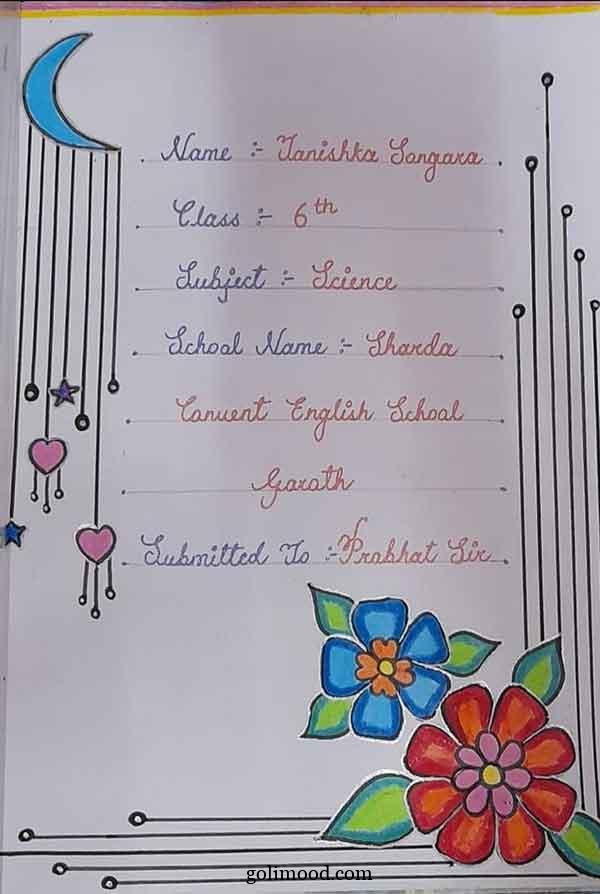 Name :- Tanishka Songara
Class :- 6th
Subject :- Science
School Name :- Sharda
Convent English School
Garoth
Submitted To :- Prabhat Sir
golimood.com